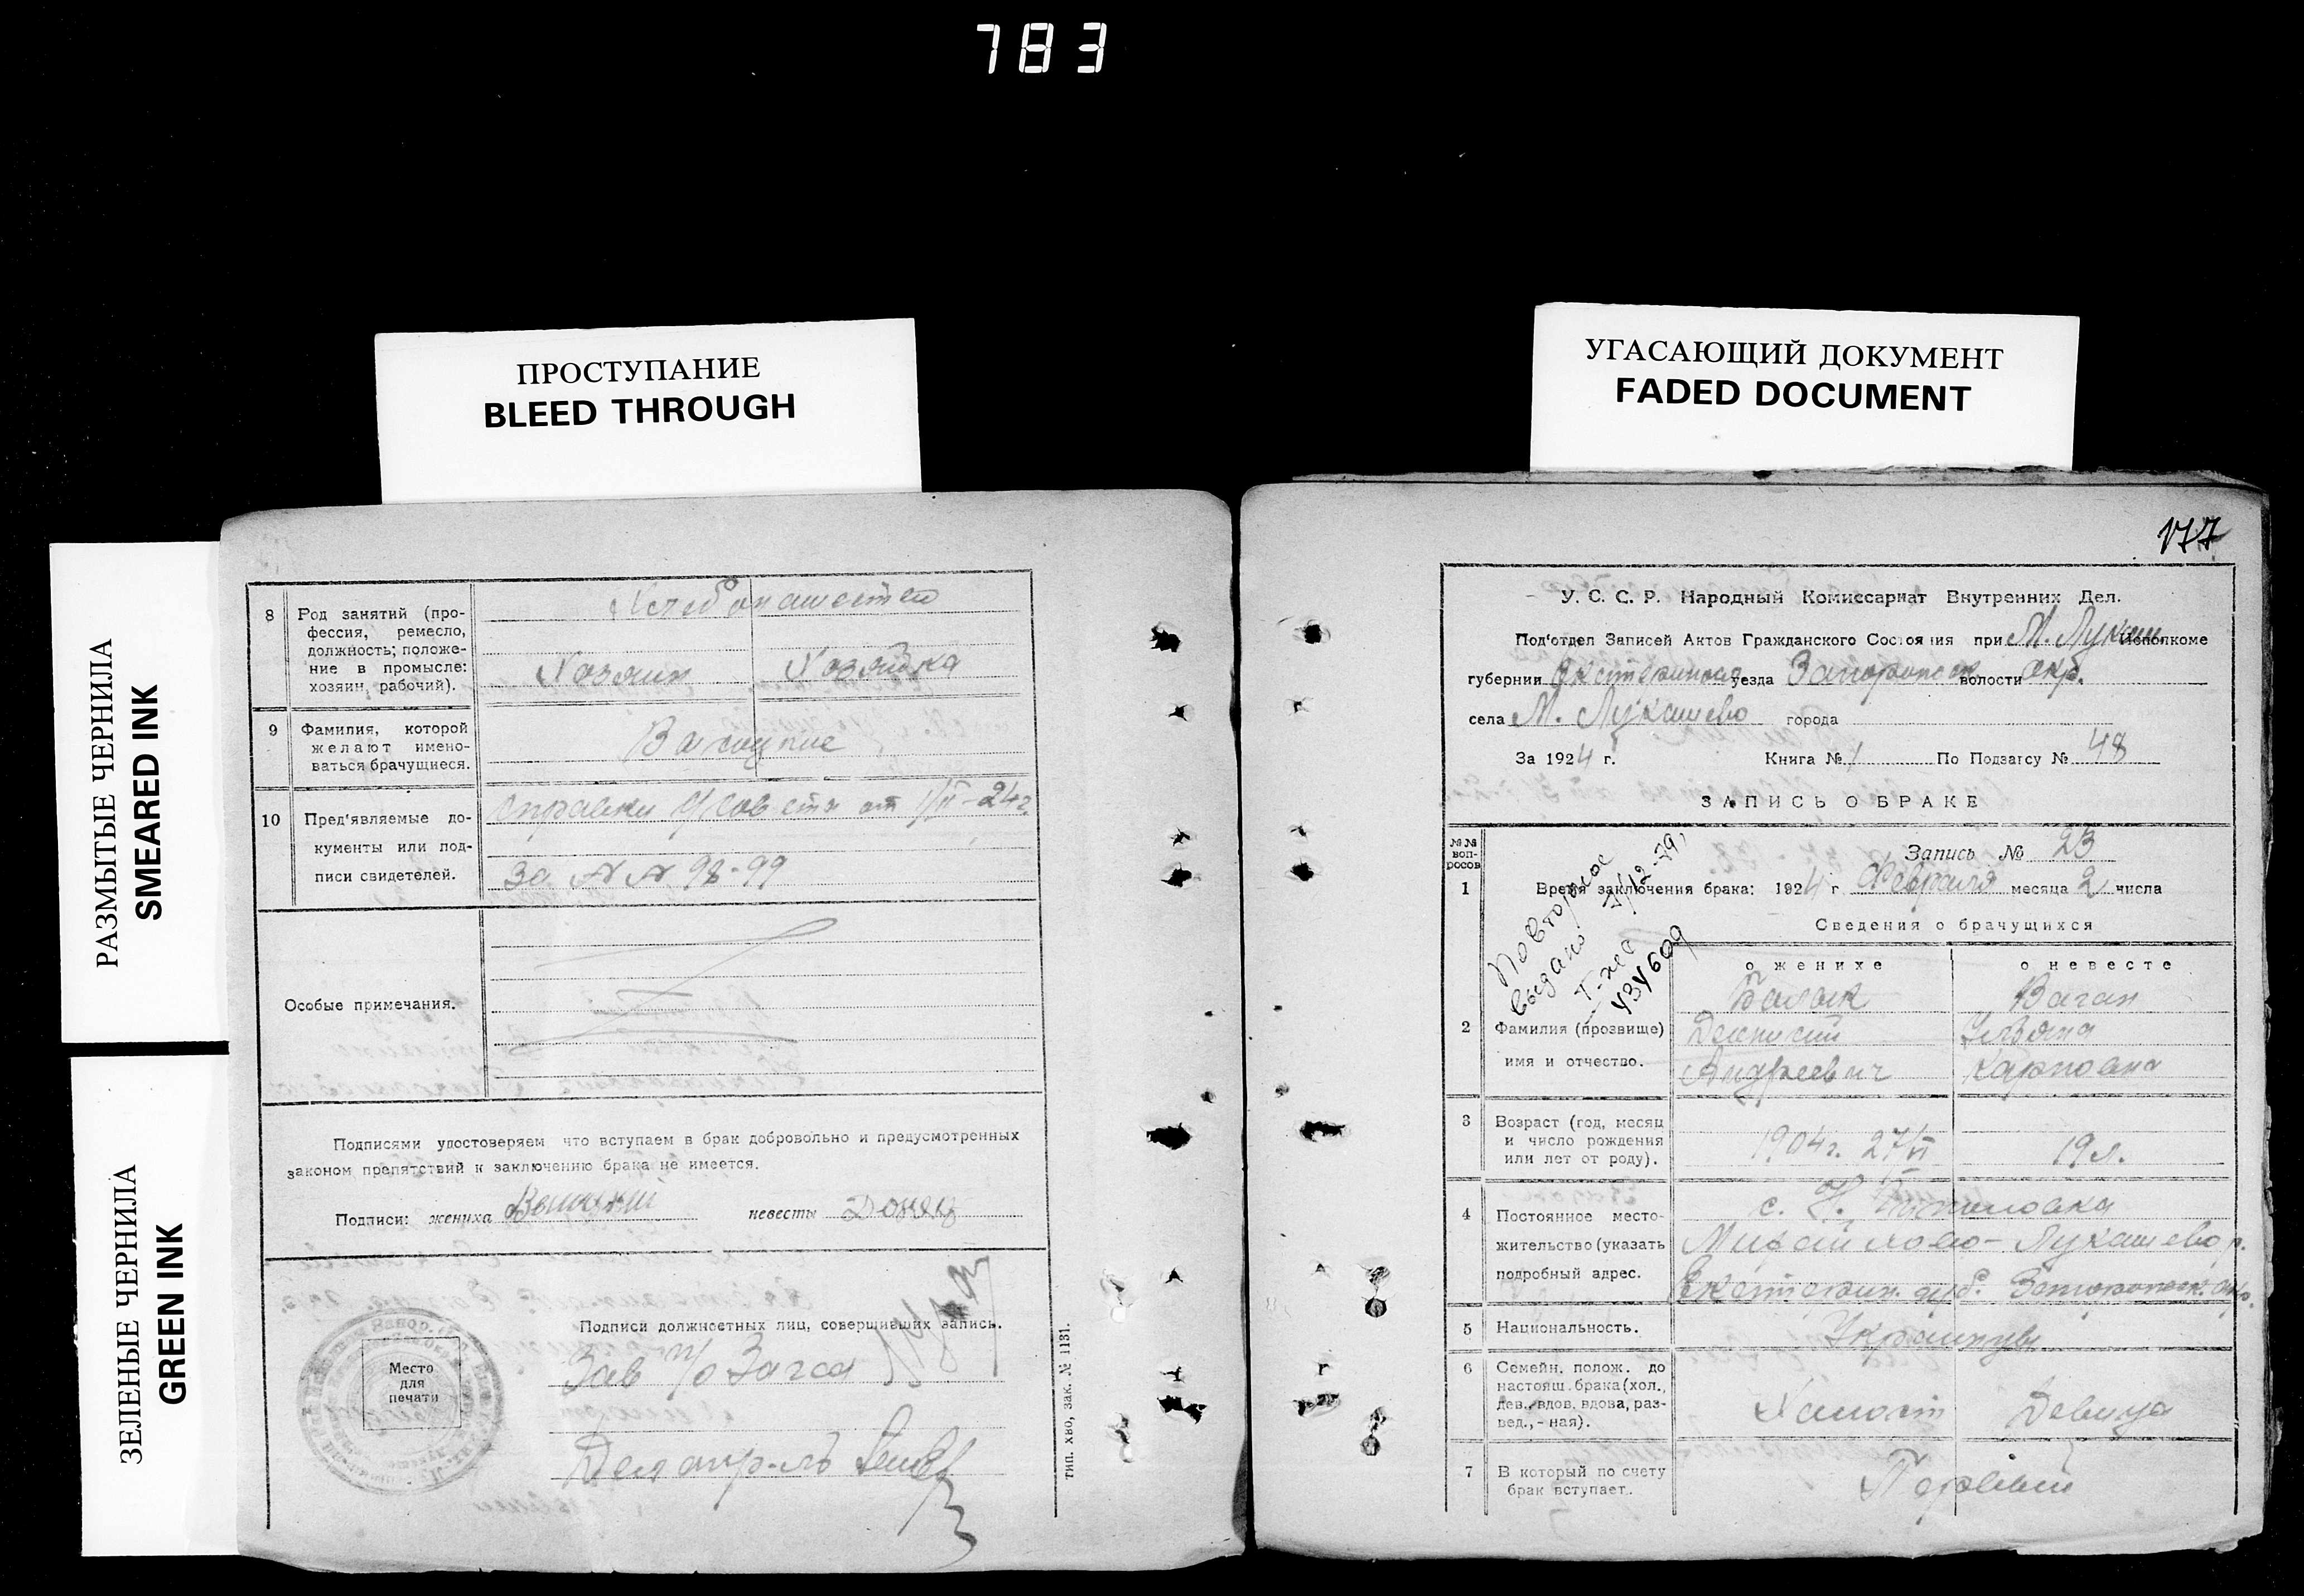 783
ПРОСТУПАНИЕ
BLEED THROUGH
УГАСАЮЩИЙ ДОКУМЕНТ
FADED DOCUMENT
РАЗМЫТЫЕ ЧЕРНИЛА
SMEARED INK
ЗЕЛЕНЫЕ ЧЕРНИЛА
GREEN INK
8 Род занятий (про-
фессия, ремесло,
должность; положе-
ние в промысле:
хозяин, рабочий).
Хлебопашество
Хозяин Хозяйка
9 Фамилия, которой
желают имено-
ваться брачущиеся.
10 Пред'являемые до-
кументы или под-
писи свидетелей.
справки с/совета от 1/II-24г.
За №№ 98-99
Особые примечания.
Подписями удостоверяем что вступаем в брак добровольно и предусмотренных
законом препятствий к заключению брака не имеется.
Подписи: жениха невесты
Подписи должностных лиц, совершивших запись.
Зав п/о Загса
Место
для
печати
Делопр-ль
тип. ХВО, зак. № 1131.
177
У. С. С. Р. Народный Комиссариат Внутренних Дел.
Под'отдел Записей Актов Гражданского Состояния при М. Лукаш исполкоме
губернии уезда волости окр.
села М. Лукашево города
За 1924 г. Книга № 1 По Подзагсу № 48
ЗАПИСЬ О БРАКЕ
№№
воп-
росов
Запись № 23
1 Время заключения брака: 1924 г. Февраля месяца 2 числа
Сведения о брачущихся
Повторное
выдано 7/12-79,
о женихе о невесте
2 Фамилия (прозвище)
имя и отчество.
Ваган
Андреевич Карповна
3 Возраст (год, месяц
и число рождения
или лет от роду).
1904г. 27/II 19 л.
4 Постоянное место-
жительство (указать
подробный адрес.
с. Н.
Михайлово-Лукашево р.
Екатерин. губ. Запорожск. окр.
5 Национальность.
Украинцы
6 Семейн. полож. до
настоящ. брака (хол.,
дев., вдов, вдова, раз-
вед., - ная).
Холост Девица
7 В который по счету
брак вступает.
Первый